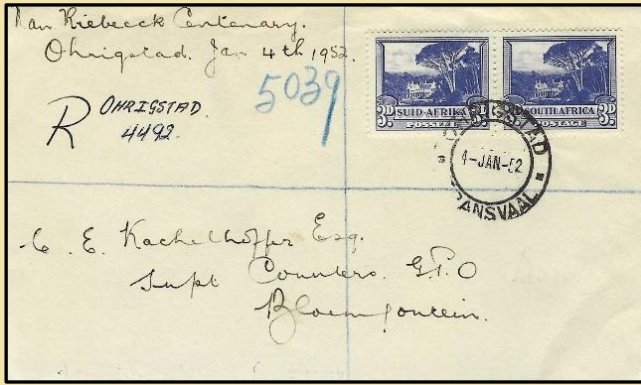 Van Riebeeck Centenary.
Ohrigstad. Jan 4th 1952.
5039
R OHRIGSTAD.
4492.
3D SUID-AFRIKA 3D
POSSEËL
3D SOUTH AFRICA 3D
POSTAGE
OHRIGSTAD
4-JAN-52
TRANSVAAL
C. E. Kachelhoffer Esq.
Supt Counters. G.P.O
Bloemfontein.